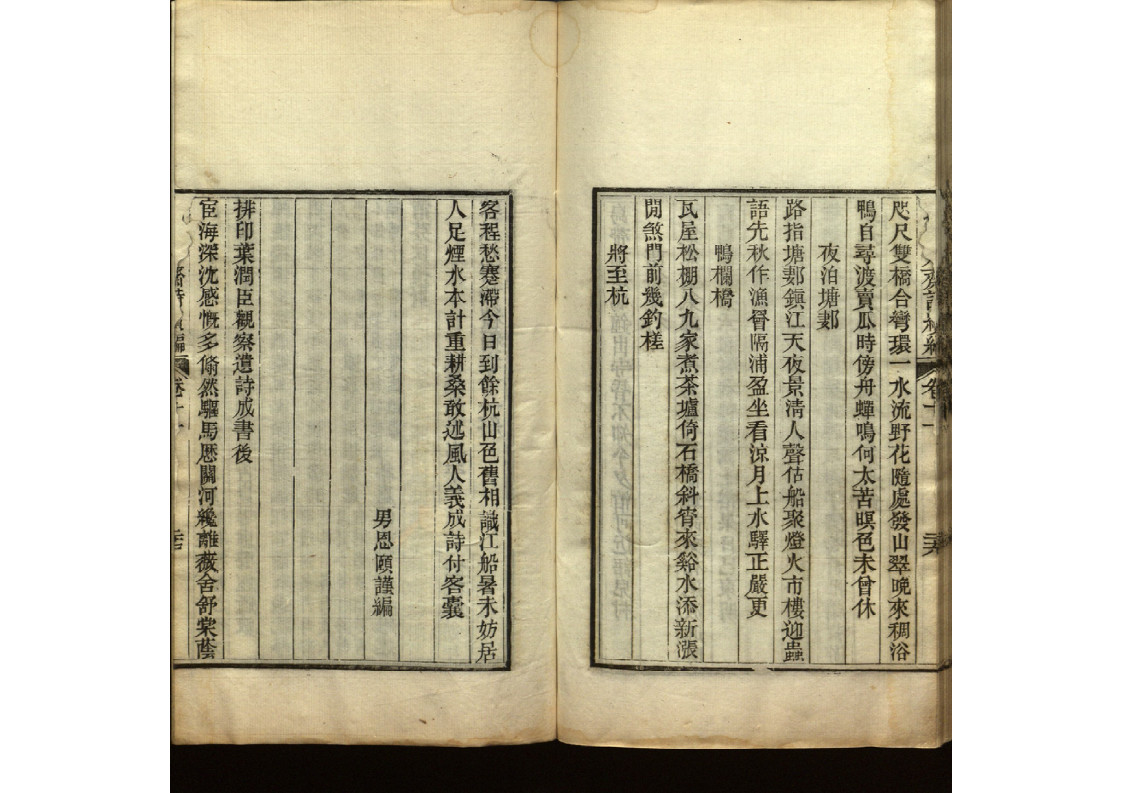 咫尺雙橋合彎環一水流野花隨處發山翠晚來稠浴
鴨自尋渡賣瓜時傍舟蟬鳴何太苦暝色未曾休
夜泊塘鄞
路指塘鄞鎮江天夜景清人聲估船聚燈火市樓迎蟲
語先秋作漁罾隔浦盈坐看涼月上水驛正嚴更
鴨欄橋
瓦屋松棚八九家煮茶壚倚石橋斜宵來谿水添新漲
閒煞門前幾釣槎
將至杭
客程愁蹇滯今日到餘杭山色舊相識江船暑未妨居
人足煙水本計重耕桑敢述風人義成詩付客囊
男恩頤謹編
排印葉潤臣觀察遺詩成書後
宦海深沈感慨多翛然驅馬歷關河纔離薇舍舒棠蔭
卷十一